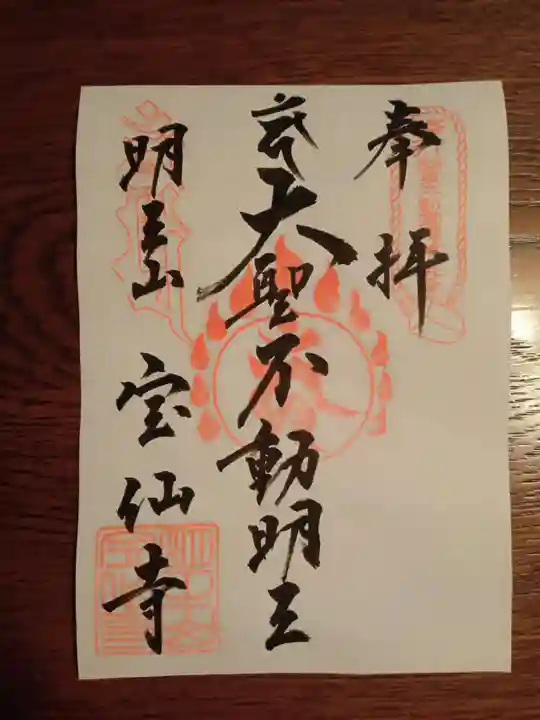 奉拝
大聖不動明王
明王山 宝仙寺